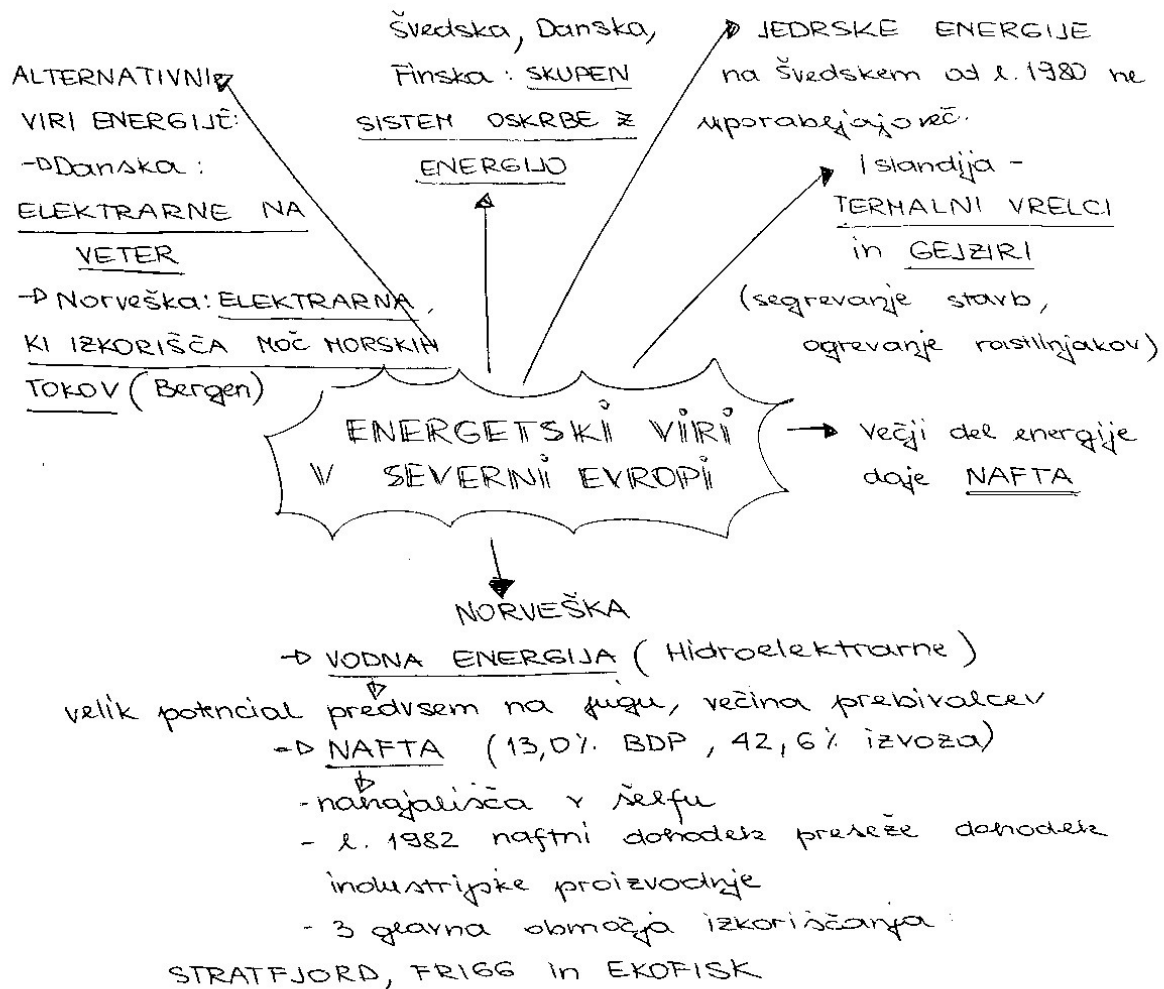 ALTERNATIVNI
VIRI ENERGIJE:
→Danska:
ELEKTRARNE NA
VETER
→ Norveška: ELEKTRARNA,
KI IZKORIŠČA MOČ MORSKIH
TOKOV (Bergen)
Švedska, Danska,
Finska: SKUPEN
SISTEM OSKRBE Z
ENERGIJO
JEDRSKE ENERGIJE
na Švedskem od l. 1980 ne
uporabljajo več.
Islandija -
TERMALNI VRELCI
in GEJZIRI
(segrevanje stavb,
ogrevanje rastlinjakov)
ENERGETSKI VIRI
V SEVERNI EVROPI
večji del energije
daje NAFTA
NORVEŠKA
→ VODNA ENERGIJA (Hidroelektrarne)
velik potencial predvsem na jugu, večina prebivalcev
→ NAFTA (13,0% BDP, 42,6% izvoza)
- nahajališča v šelfu
- l. 1982 naftni dohodek preseže dohodek
industrijske proizvodnje
- 3 glavna območja izkoriščanja:
STRATFJORD, FRIGG in EKOFISK